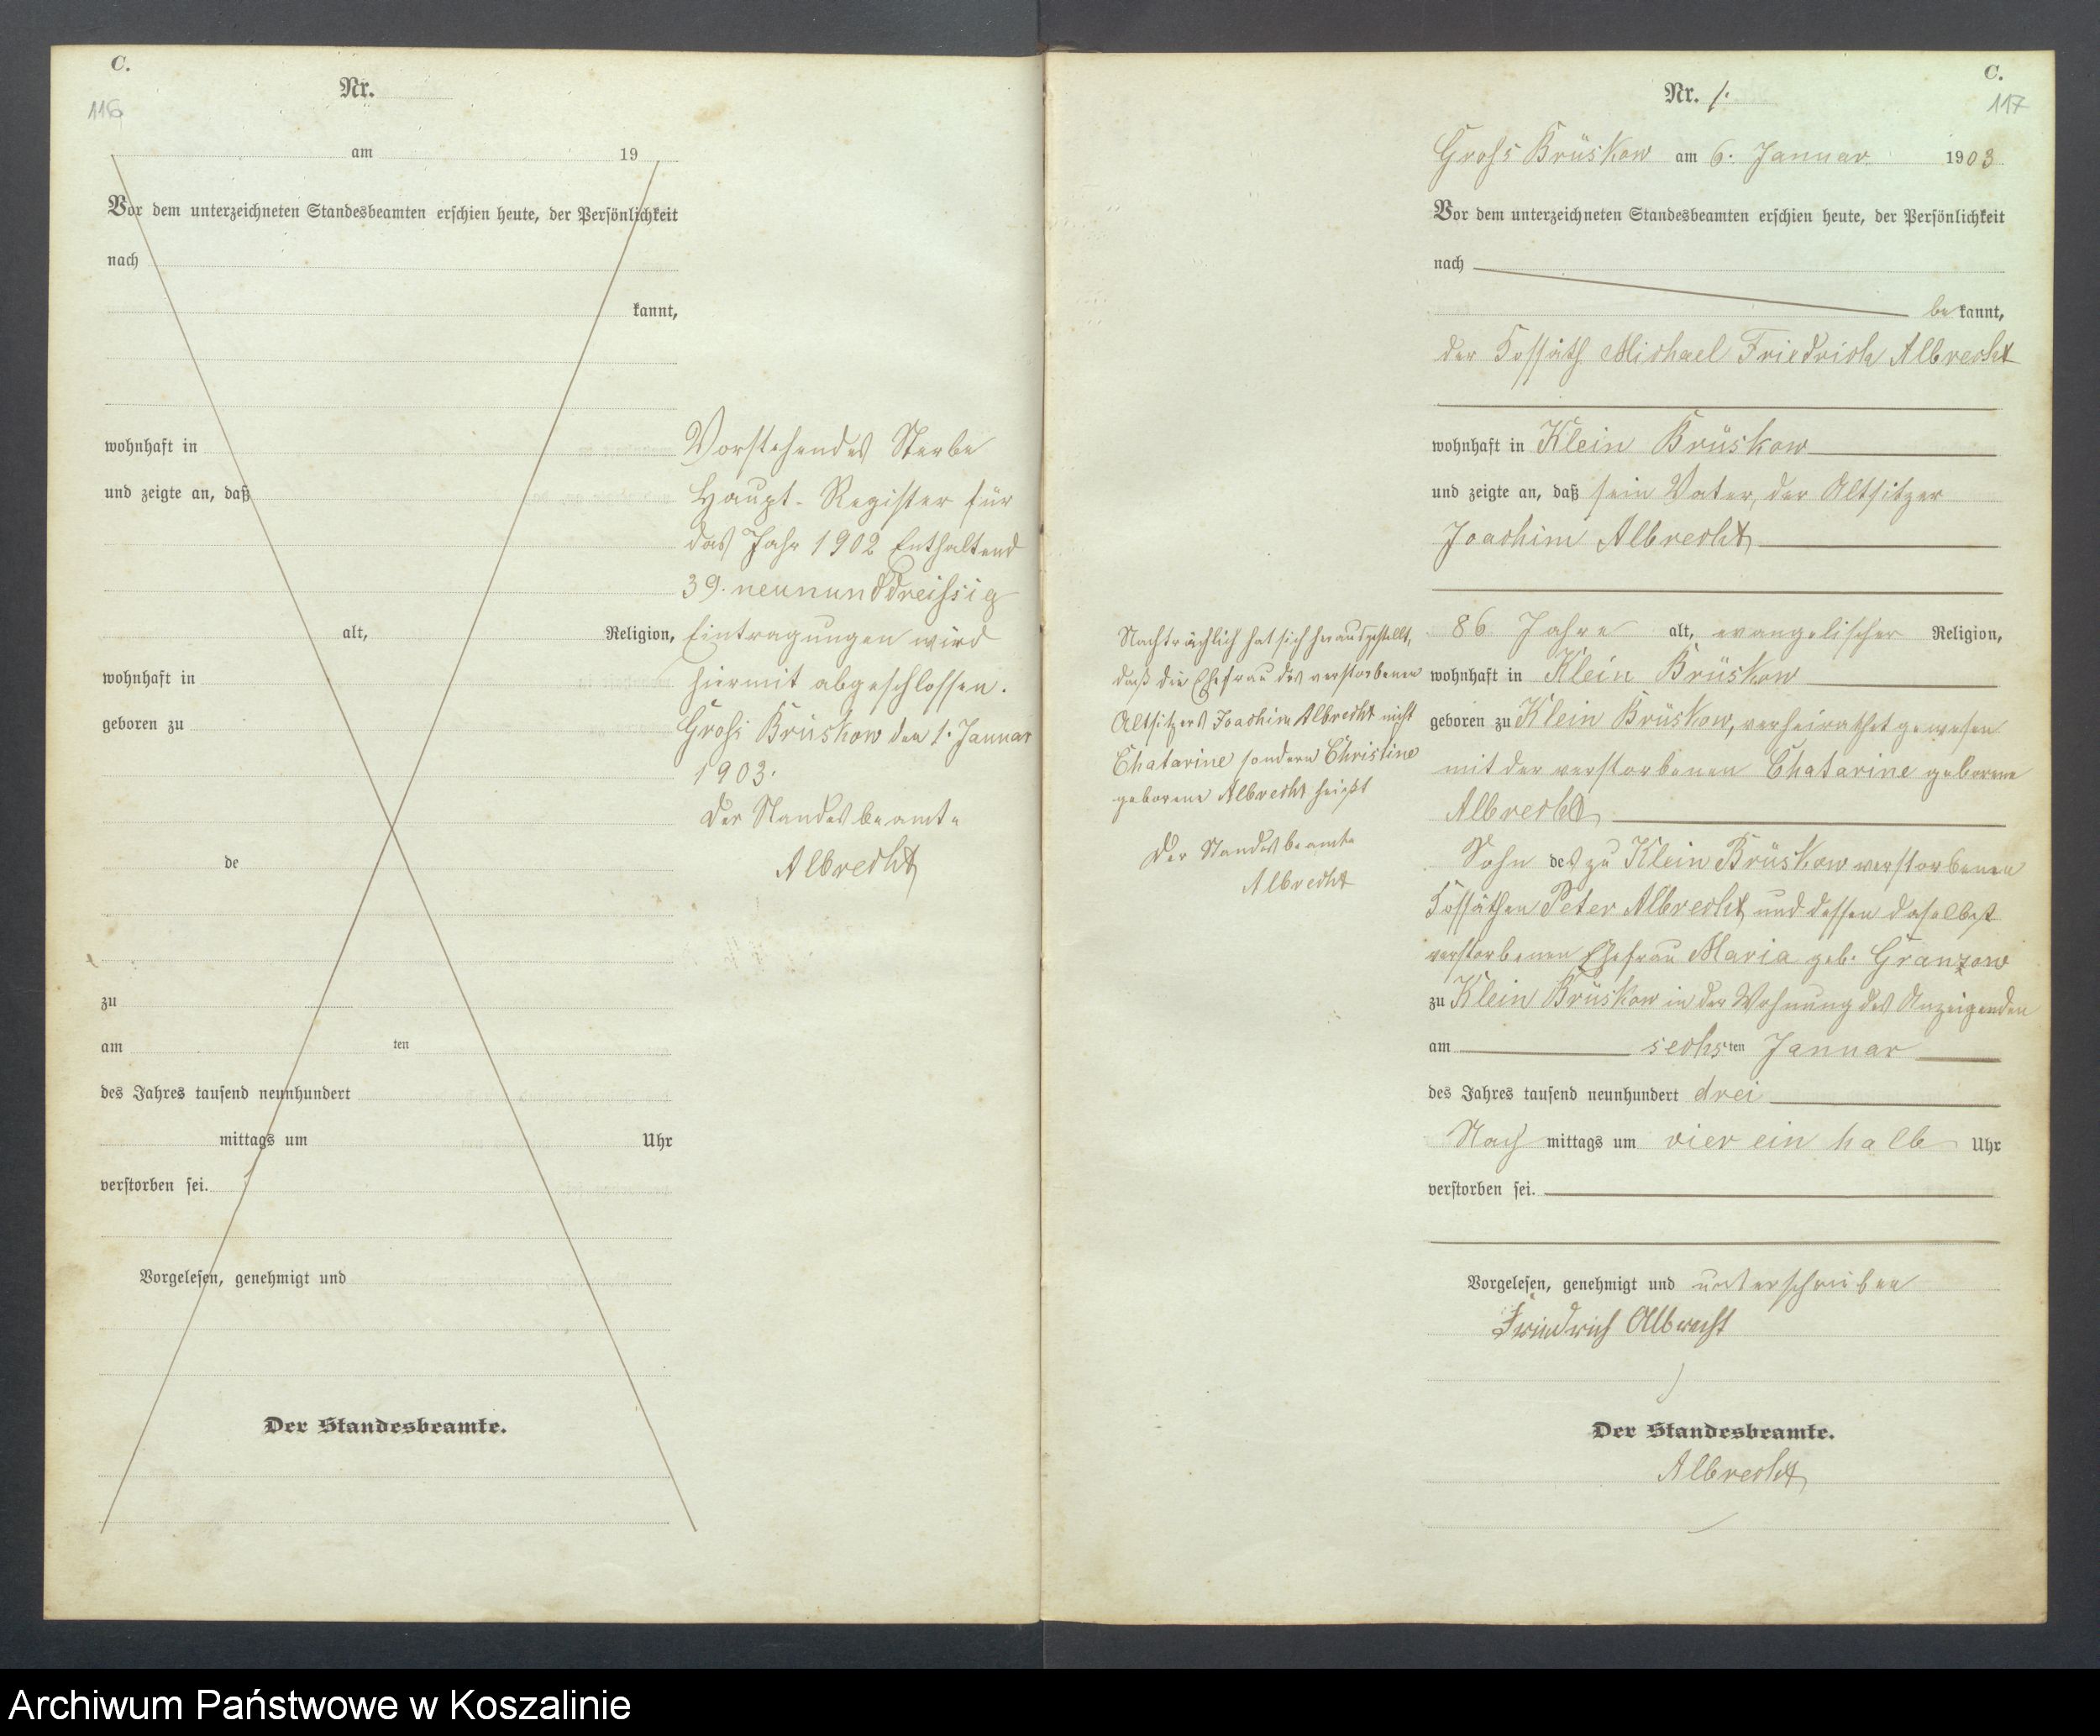 C.
116
Nr.
am 19
Vor dem unterzeichneten Standesbeamten erschien heute, der Persönlichkeit
nach
kannt,
wohnhaft in
und zeigte an, daß
alt, Religion,
wohnhaft in
geboren zu
de
zu
am ten
des Jahres tausend neunhundert
mittags um Uhr
verstorben sei.
Vorgelesen, genehmigt und
Der Standesbeamte.
Vorstehendes Sterbe
Haupt-Register für
das Jahr 1902 Enthaltend
39. neununddreissig
Eintragungen wird
hiermit abgeschlossen.
Gross Brüskow den 1. Januar
1903.
Der Standesbeamte
Albrecht
C.
117
Nr. 1.
Gross Brüskow am 6. Januar 1903
Vor dem unterzeichneten Standesbeamten erschien heute, der Persönlichkeit
nach
bekannt,
der Kossäth Michael Friedrich Albrecht
wohnhaft in Klein Brüskow
und zeigte an, daß sein Vater, der Altsitzer
Joachim Albrecht
86 Jahre alt, evangelischer Religion,
wohnhaft in Klein Brüskow
geboren zu Klein Brüskow, verheirathet gewesen
mit der verstorbenen Chatarine geborene
Albrecht
Sohn des zu Klein Brüskow verstorbenen
Kossäthen Peter Albrecht und dessen daselbst
verstorbenen Ehefrau Maria geb. Granzow
zu Klein Brüskow in der Wohnung des Anzeigenden
am sechsten Januar
des Jahres tausend neunhundert drei
Nachmittags um vier ein halb Uhr
verstorben sei.
Vorgelesen, genehmigt und unterschrieben
Friedrich Albrecht
Der Standesbeamte.
Albrecht
Nachträchlich hat sich herausgestellt,
daß die Ehefrau des verstorbenen
Altsitzers Joachim Albrecht nicht
Chatarine sondern Christine
geborene Albrecht heißt
Der Standesbeamte
Albrecht
Archiwum Państwowe w Koszalinie